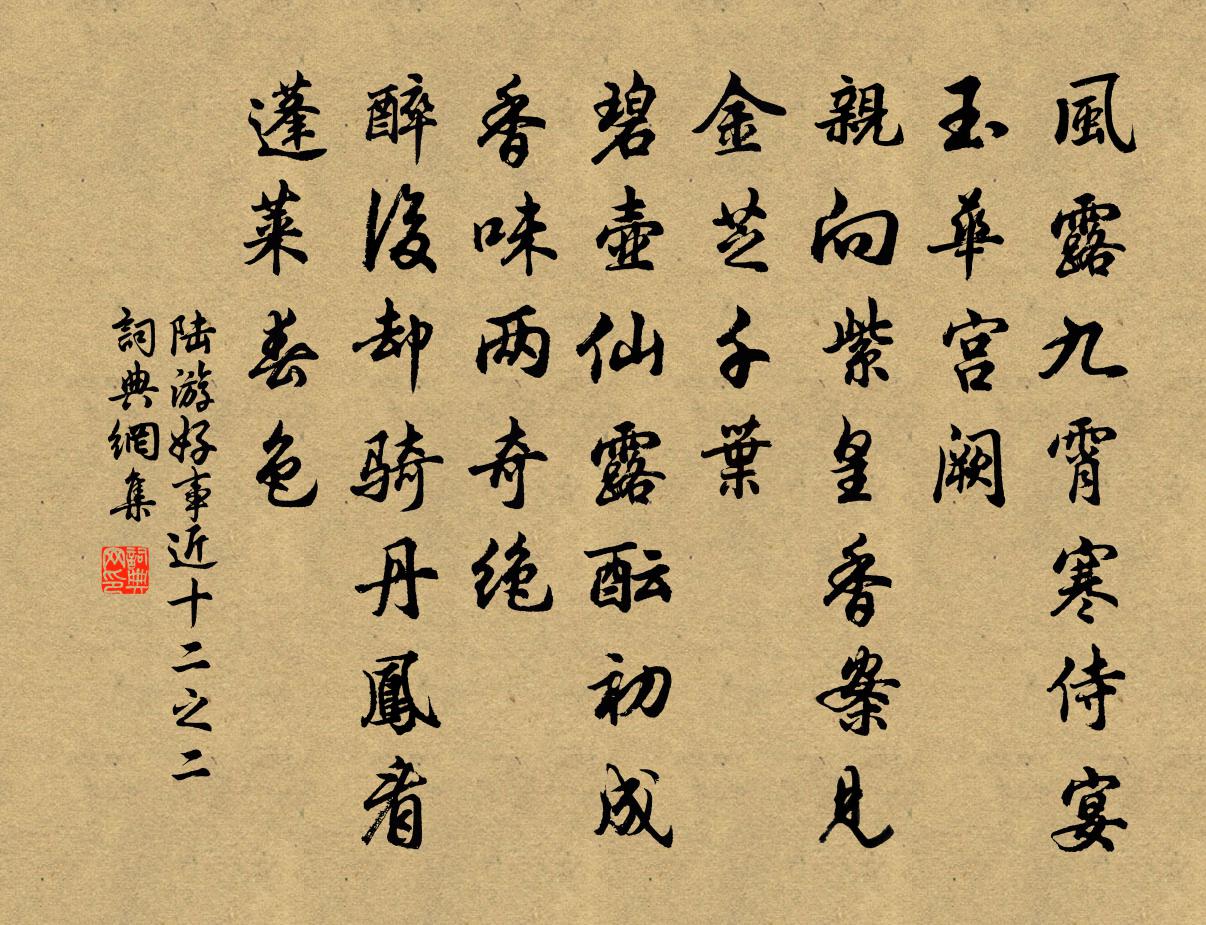 風露九霄寒侍宴
玉華宮闕
親向紫皇香案見
金芝千葉
碧壺仙露醖初成
香味两奇絶
醉後却騎丹鳳看
蓬莱春色
陆游好事近十二之二
詞典網集
詞典网印